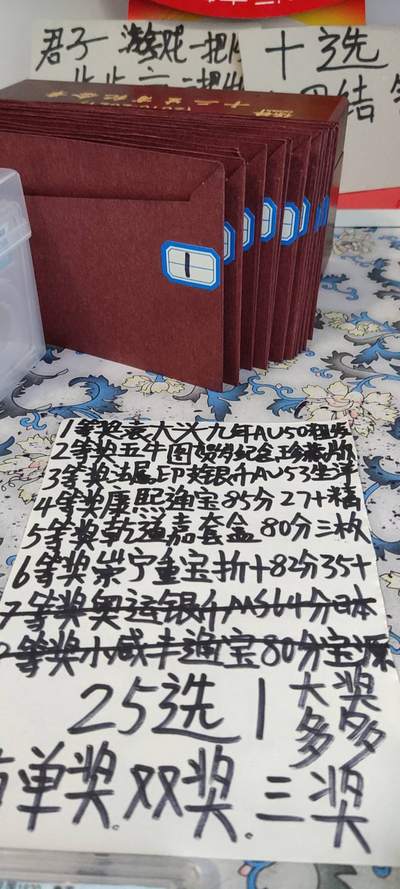 君子一 游戏一把
十选
十二生肖纪念章
1
1等奖袁大头九年AU50粗发
2等奖五牛图 纪念
3等奖法属印支银币AU53坐洋
4等奖康熙通宝85分27+
5等奖乾道嘉套盒80分三枚
6等奖崇宁重宝折十82分35+
7等奖奥运银币MS64分日本
8等奖小咸丰通宝80分宝源
25选1
大奖
多多
单奖.双奖.三奖